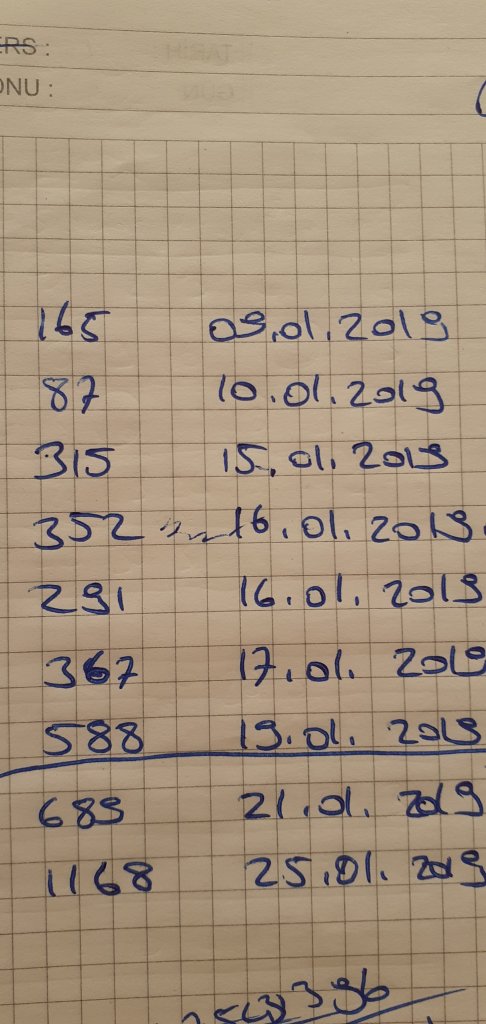 ERS :
ONU :
165 09.01.2019
87 10.01.2019
315 15.01.2019
352 16.01.2019
291 16.01.2019
367 17.01.2019
588 19.01.2019
689 21.01.2019
1168 25.01.2019